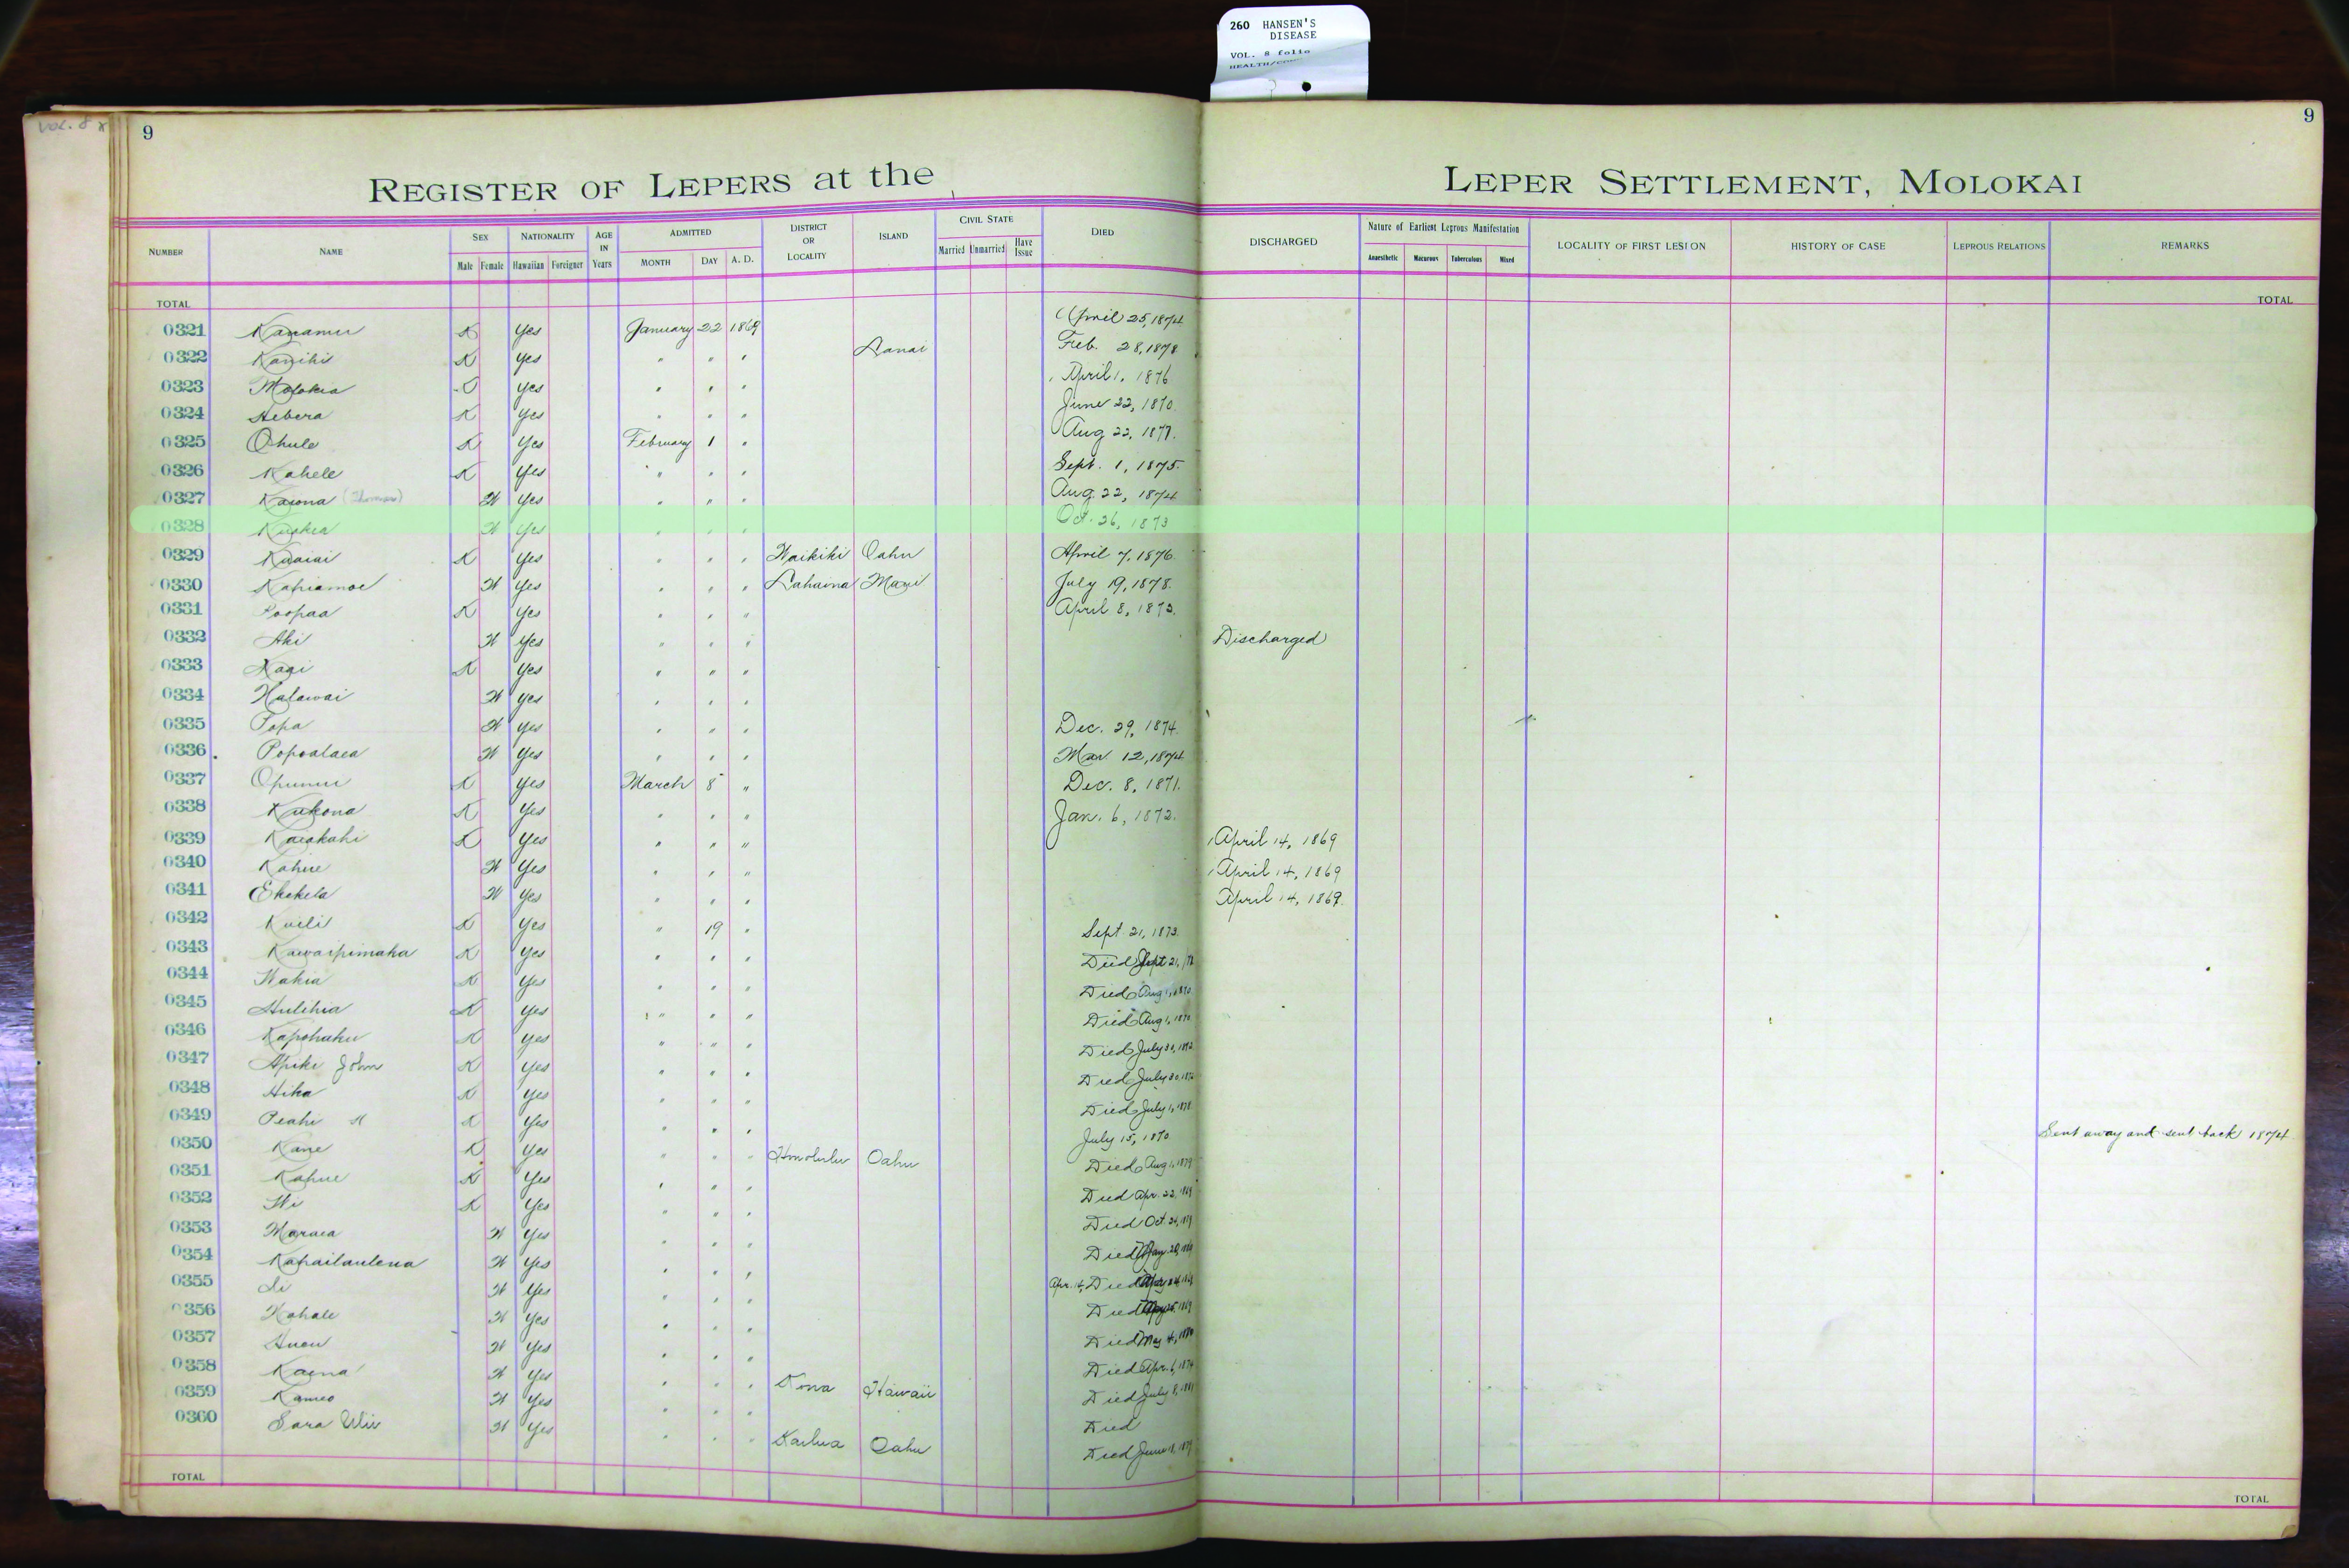 260 HANSEN'S
DISEASE
VOL. 8 folio
VOL. 8
9
9
REGISTER OF LEPERS at the LEPER SETTLEMENT, MOLOKAI
NUMBER NAME SEX NATIONALITY AGE IN Years ADMITTED DISTRICT OR LOCALITY ISLAND CIVIL STATE DIED DISCHARGED Nature of Earliest Leprous Manifestation LOCALITY OF FIRST LESION HISTORY OF CASE LEPROUS RELATIONS REMARKS
Male Female Hawaiian Foreigner MONTH DAY A. D. Married Unmarried Have Issue Anaesthetic Macurous Tuberculous Mixed
TOTAL TOTAL
0321 Kanamu K Yes January 22 1869 April 25, 1874
0322 Kanihi K Yes " " " Lanai Feb. 28, 1878
0323 Molokia Yes " " " April 1, 1876
0324 Hebera K Yes " " " June 22, 1870
0325 Ohule K Yes February 1 " Aug 22, 1877.
0326 Kahele K Yes " " " Sept. 1, 1875.
0327 Kaiona (Thomas) W Yes " " " Aug. 22, 1874
0328 W Yes " " " Oct. 26, 1873
0329 Kuaiai K Yes " " " Waikiki Oahu April 7, 1876.
0330 Kahiamoe W Yes " " " Lahaina Maui July 19, 1878.
0331 Poopaa K Yes " " " April 8, 1873.
0332 Aki W Yes " " " Discharged
0333 K Yes " " "
0334 Halawai W Yes " " "
0335 Popa W Yes " " " Dec. 29, 1874.
0336 Popoalaea W Yes " " " Mar 12, 1874
0337 Opunui K Yes March 8 " Dec. 8, 1871.
0338 Kukona K Yes " " " Jan. 6, 1872.
0339 Kaiakahi K Yes " " " April 14, 1869
0340 Kahue W Yes " " " April 14, 1869
0341 Ekekela W Yes " " " April 14, 1869.
0342 Kuili K Yes " 19 " Sept. 21, 1873.
0343 Kawaipimaka K Yes " " " Died Sept 21,
0344 Wahia K Yes " " " Died Aug 1, 1870
0345 Hulihia K Yes " " " Died Aug 1, 1870
0346 Kapohaku K Yes " " " Died July 30, 1872
0347 Apiki John K Yes " " " Died July 30, 1872
0348 Hika K Yes " " " Died July 1, 1878
0349 Peahi K Yes " " " July 15, 1870. Sent away and sent back 1874
0350 Kane K Yes " " " Honolulu Oahu Died Aug 1, 1879
0351 Kahue K Yes " " " Died Apr. 22, 1869
0352 K Yes " " " Died Oct.
0353 Maraea W Yes " " " Died
0354 Kahailaulena W Yes " " " Apr. 14, Died
0355 W Yes " " " Died
0356 W Yes " " " Died May 4,
0357 W Yes " " " Died Apr. 6, 1874
0358 Kaena W Yes " " " Kona Hawaii Died July 8, 1881
0359 Kameo W Yes " " " Died
0360 Sara W Yes " " " Kailua Oahu Died June 18, 1879
TOTAL TOTAL